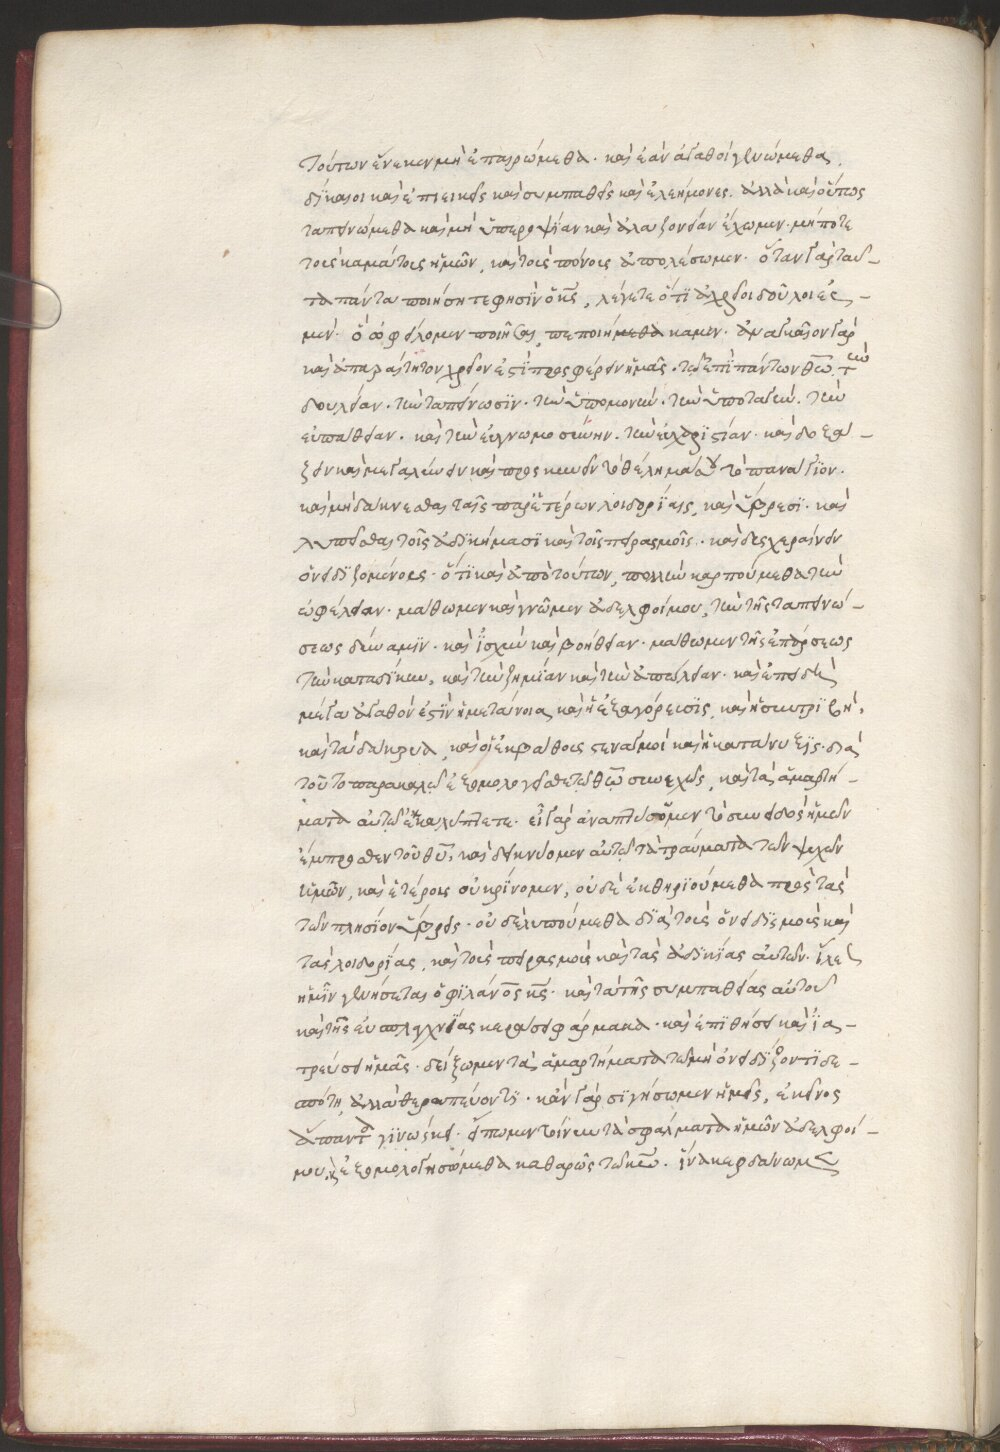 τούτων ἕνεκεν μὴ ἐπαιρώμεθα. καὶ ἐὰν ἀγαθοὶ γενώμεθα,
δίκαιοι καὶ ἐπιεικεῖς καὶ συμπαθεῖς καὶ ἐλεήμονες. ἀλλὰ καὶ οὕτως
ταπεινώμεθα καὶ μὴ ὑπεροψίαν καὶ ἀλαζονείαν ἔχωμεν. μήποτε
τοὺς καμάτους ἡμῶν, καὶ τοὺς πόνους ἀπολέσωμεν. ὅταν γὰρ ταῦ-
τα πάντα ποιήσητε φησὶν ὁ κ̅ς̅, λέγετε ὅτι ἀχρεῖοι δοῦλοι ἐσ-
μέν. ὃ ὠφείλομεν ποιῆσαι, πεποιήκαμεν. ἀναγκαῖον γὰρ
καὶ ἀπαραίτητον χρέον ἐστὶ προσφέρειν ἡμᾶς. τῷ ἐπὶ πάντων θ̅ω̅. τὴν
δουλείαν. τὴν ταπείνωσιν. τὴν ὑπομονήν. τὴν ὑποταγήν. τὴν
εὐπείθειαν. καὶ τὴν εὐγνωμοσύνην. τὴν εὐχαριστίαν. καὶ δοξά-
ζειν καὶ μεγαλύνειν καὶ προσκυνεῖν τὸ θέλημα αὐτοῦ τὸ πανάγιον.
καὶ μὴ δάκνεσθαι ταῖς παρ' ἑτέρων λοιδορίαις, καὶ ὕβρεσι. καὶ
λυπεῖσθαι τοῖς ἀδικήμασι καὶ τοῖς πειρασμοῖς. καὶ δυσχεραίνειν
ὀνειδιζομένους. ὅτι καὶ ἀπὸ τούτων, πολλὴν καρπούμεθα τὴν
ὠφέλειαν. μάθωμεν καὶ γνῶμεν ἀδελφοί μου, τὴν τῆς ταπεινώ-
σεως δύναμιν. καὶ ἰσχὺν καὶ βοήθειαν. μάθωμεν τῆς ἐπάρσεως
τὴν καταδίκην, καὶ τὴν ζημίαν καὶ τὴν ἀπώλειαν. καὶ ἐπειδὴ
μέγα ἀγαθόν ἐστιν ἡ μετάνοια, καὶ ἡ ἐξαγόρευσις, καὶ ἡ συντριβὴ,
καὶ τὰ δάκρυα, καὶ οἱ ἐκ βάθους στεναγμοὶ καὶ ἡ κατάνυξις. διὰ
τοῦτο παρακαλῶ ἐξομολογεῖσθε τῷ θ̅ω̅ συνεχῶς, καὶ τὰ ἁμαρτή-
ματα αὐτῷ ἐκκαλύπτετε. εἰ γὰρ ἀναπτύσομεν τὸ συνειδὸς ἡμῶν
ἔμπροσθεν τοῦ θ̅υ̅, καὶ δείκνύομεν αὐτῷ τὰ τραύματα τῶν ψυχῶν
ἡμῶν, καὶ ἑτέρους οὐ κρίνομεν, οὐδὲ ἐκθηριούμεθα πρὸς τὰς
τῶν πλησίον ὕβρεις. οὐδὲ λυπούμεθα διὰ τοὺς ὀνειδισμοὺς καὶ
τὰς λοιδορίας, καὶ τοὺς πειρασμοὺς καὶ τὰς ἀδικίας αὐτῶν. ἵλεως
ἡμῖν γενήσεται ὁ φιλάν̅ο̅ς̅ κ̅ς̅. καὶ τὰ τῆς συμπαθείας αὐτοῦ
καὶ τῆς εὐσπλαγχνίας κεράσει φάρμακα. καὶ ἐπιθήσει καὶ ἰα-
τρεύσει ἡμᾶς. δείξωμεν τὰ ἁμαρτήματα τῷ μὴ ὀνειδίζοντι δε-
σπότῃ, ἀλλὰ θεραπεύοντι. κἂν γὰρ σιγήσωμεν ἡμεῖς, ἐκεῖνος
ἅπαντα γινώσκει. εἴπωμεν τοίνυν τὰ σφάλματα ἡμῶν ἀδελφοί
μου, καὶ ἐξομολογησώμεθα καθαρῶς τῷ κ̅ω̅. ἵνα κερδάνωμεν